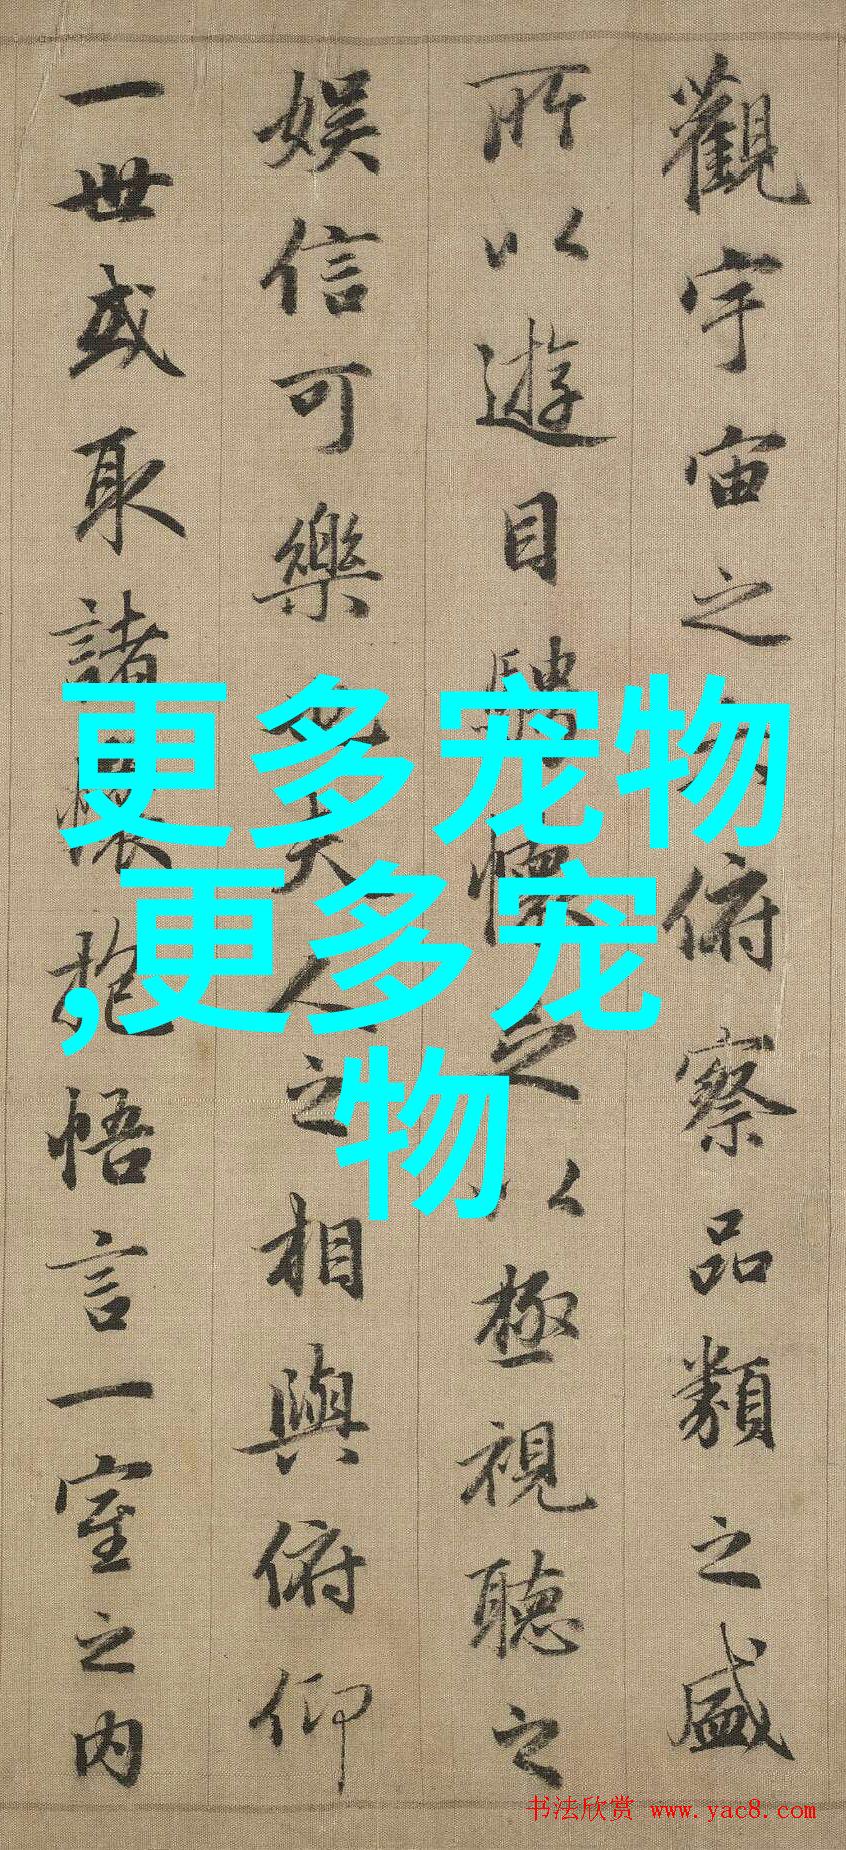 觀宇宙之俯察品類之盛
所以遊目騁懷以極視聽之
娛信可樂也夫人之相與俯仰
一世或取諸懷抱悟言一室之内
更多宠物
,更多宠
物
书法欣赏 www.yac8.com